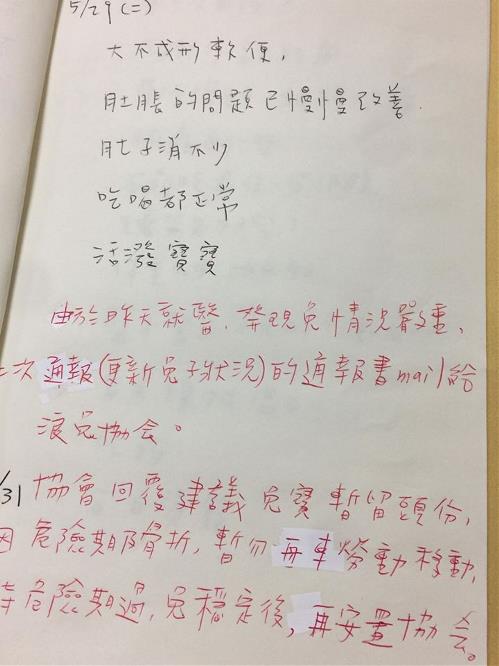 5/29 (二)
大不成形軟便,
肚脹的問題已慢慢改善.
肚子消不少
吃喝都正常
活潑寶寶
由於昨天就醫, 發現兔情況嚴重,
二次通報(更新兔子狀況)的通報書mail給
浪兔協会。
/31 協會回覆建議兔寶暫留頭份,
因危險期及骨折, 暫勿再車勞動移動,
危險期過, 兔穩定後, 再安置協会。